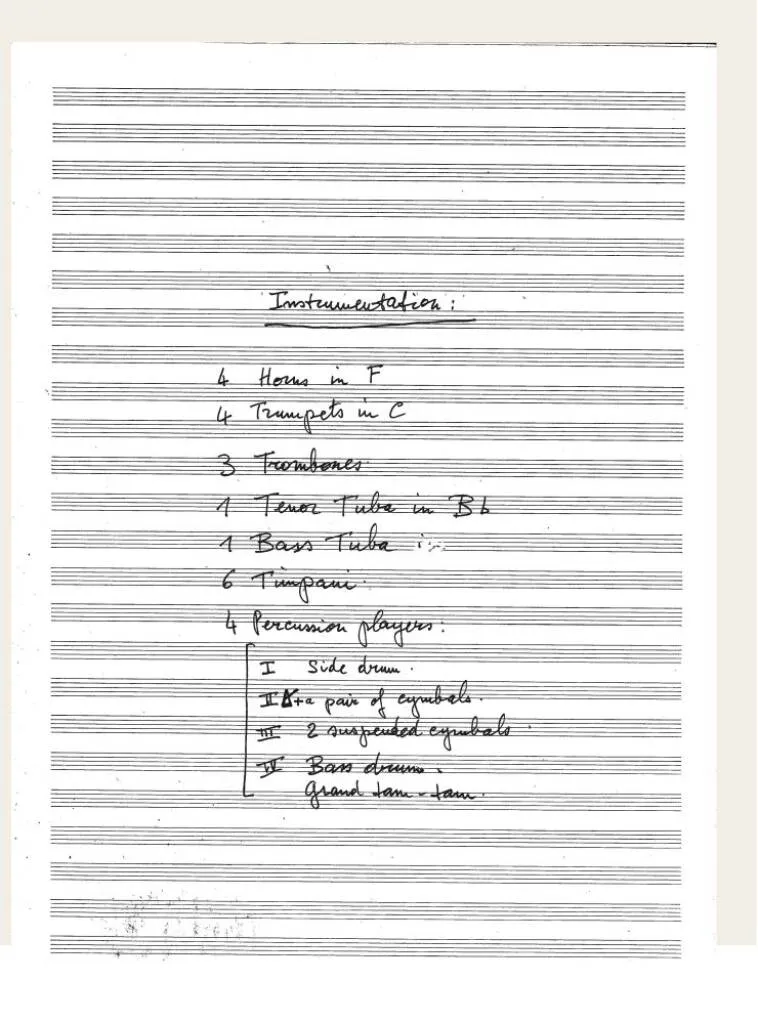 Instrumentation:
4 Horns in F
4 Trumpets in C
3 Trombones
1 Tenor Tuba in Bb
1 Bass Tuba
6 Timpani.
4 Percussion players:
I Side drum.
II a pair of cymbals.
III 2 suspended cymbals.
IV Bass drum.
Grand tam-tam.